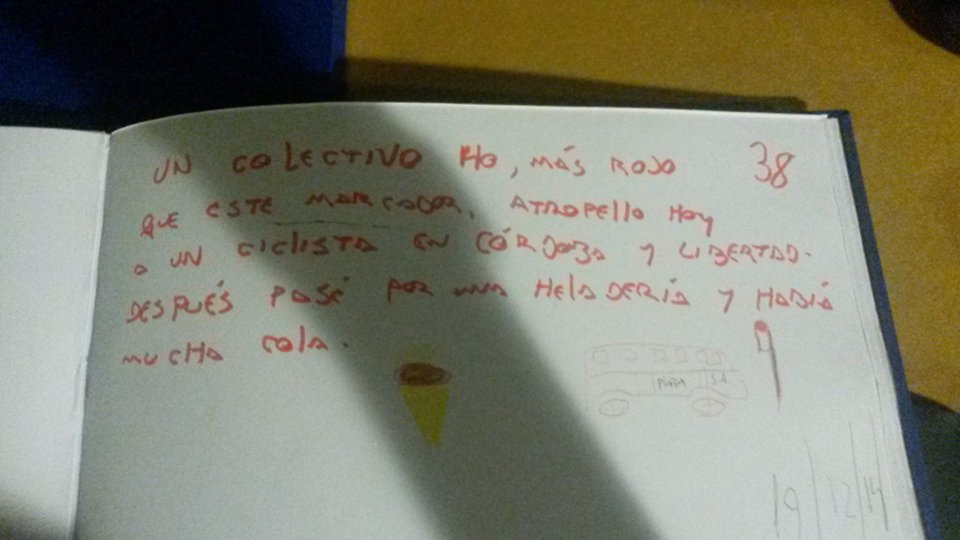 UN COLECTIVO, MÁS ROJO
38
QUE ESTE MARCADOR, ATROPELLO HOY
A UN CICLISTA EN CÓRDOBA Y LIBERTAD.
DESPUÉS PASÉ POR UNA HELADERÍA Y HABÍA
MUCHA COLA.
PLAZA S.A.
19/12/14